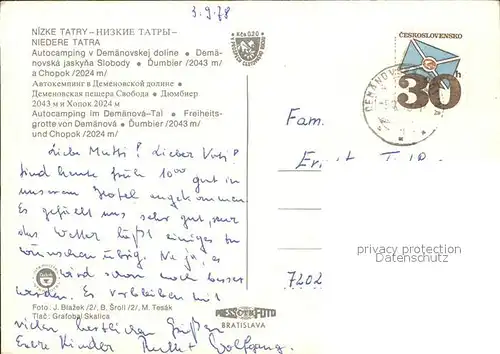 3.9.78
NÍZKE TATRY – НИЗКИЕ ТАТРЫ –
NIEDERE TATRA
Autocamping v Demänovskej doline • Demä-
novská jaskyňa Slobody • Ďumbier /2043 m/
a Chopok /2024 m/
Автокемпинг в Деменовской долине •
Деменовская пещера Свобода • Дюмбиер
2043 м и Хопок 2024 м
Autocamping im Demänová-Tal • Freiheits-
grotte von Demänová • Ďumbier /2043 m/
und Chopok /2024 m/
Kčs 0,20
ČESKOSLOVENSKO
30h
Fam.
7202
Liebe Mutti! Lieber Vati!
Sind heute früh 10⁰⁰ gut in
unserem Hotel angekommen.
Es gefällt uns sehr gut, nur
das Wetter läßt einiges zu
wünschen übrig. Na ja, es
wird schon noch besser
werden. Es verbleiben mit
vielen herzlichen Grüßen
Eure Kinder Wolfgang.
Foto: J. Blažek /2/, B. Šroll /2/, M. Tesák
Tlač: Grafobal Skalica
PRESSFOTO
BRATISLAVA
privacy protection
www.ansichtskarten-lexikon.de